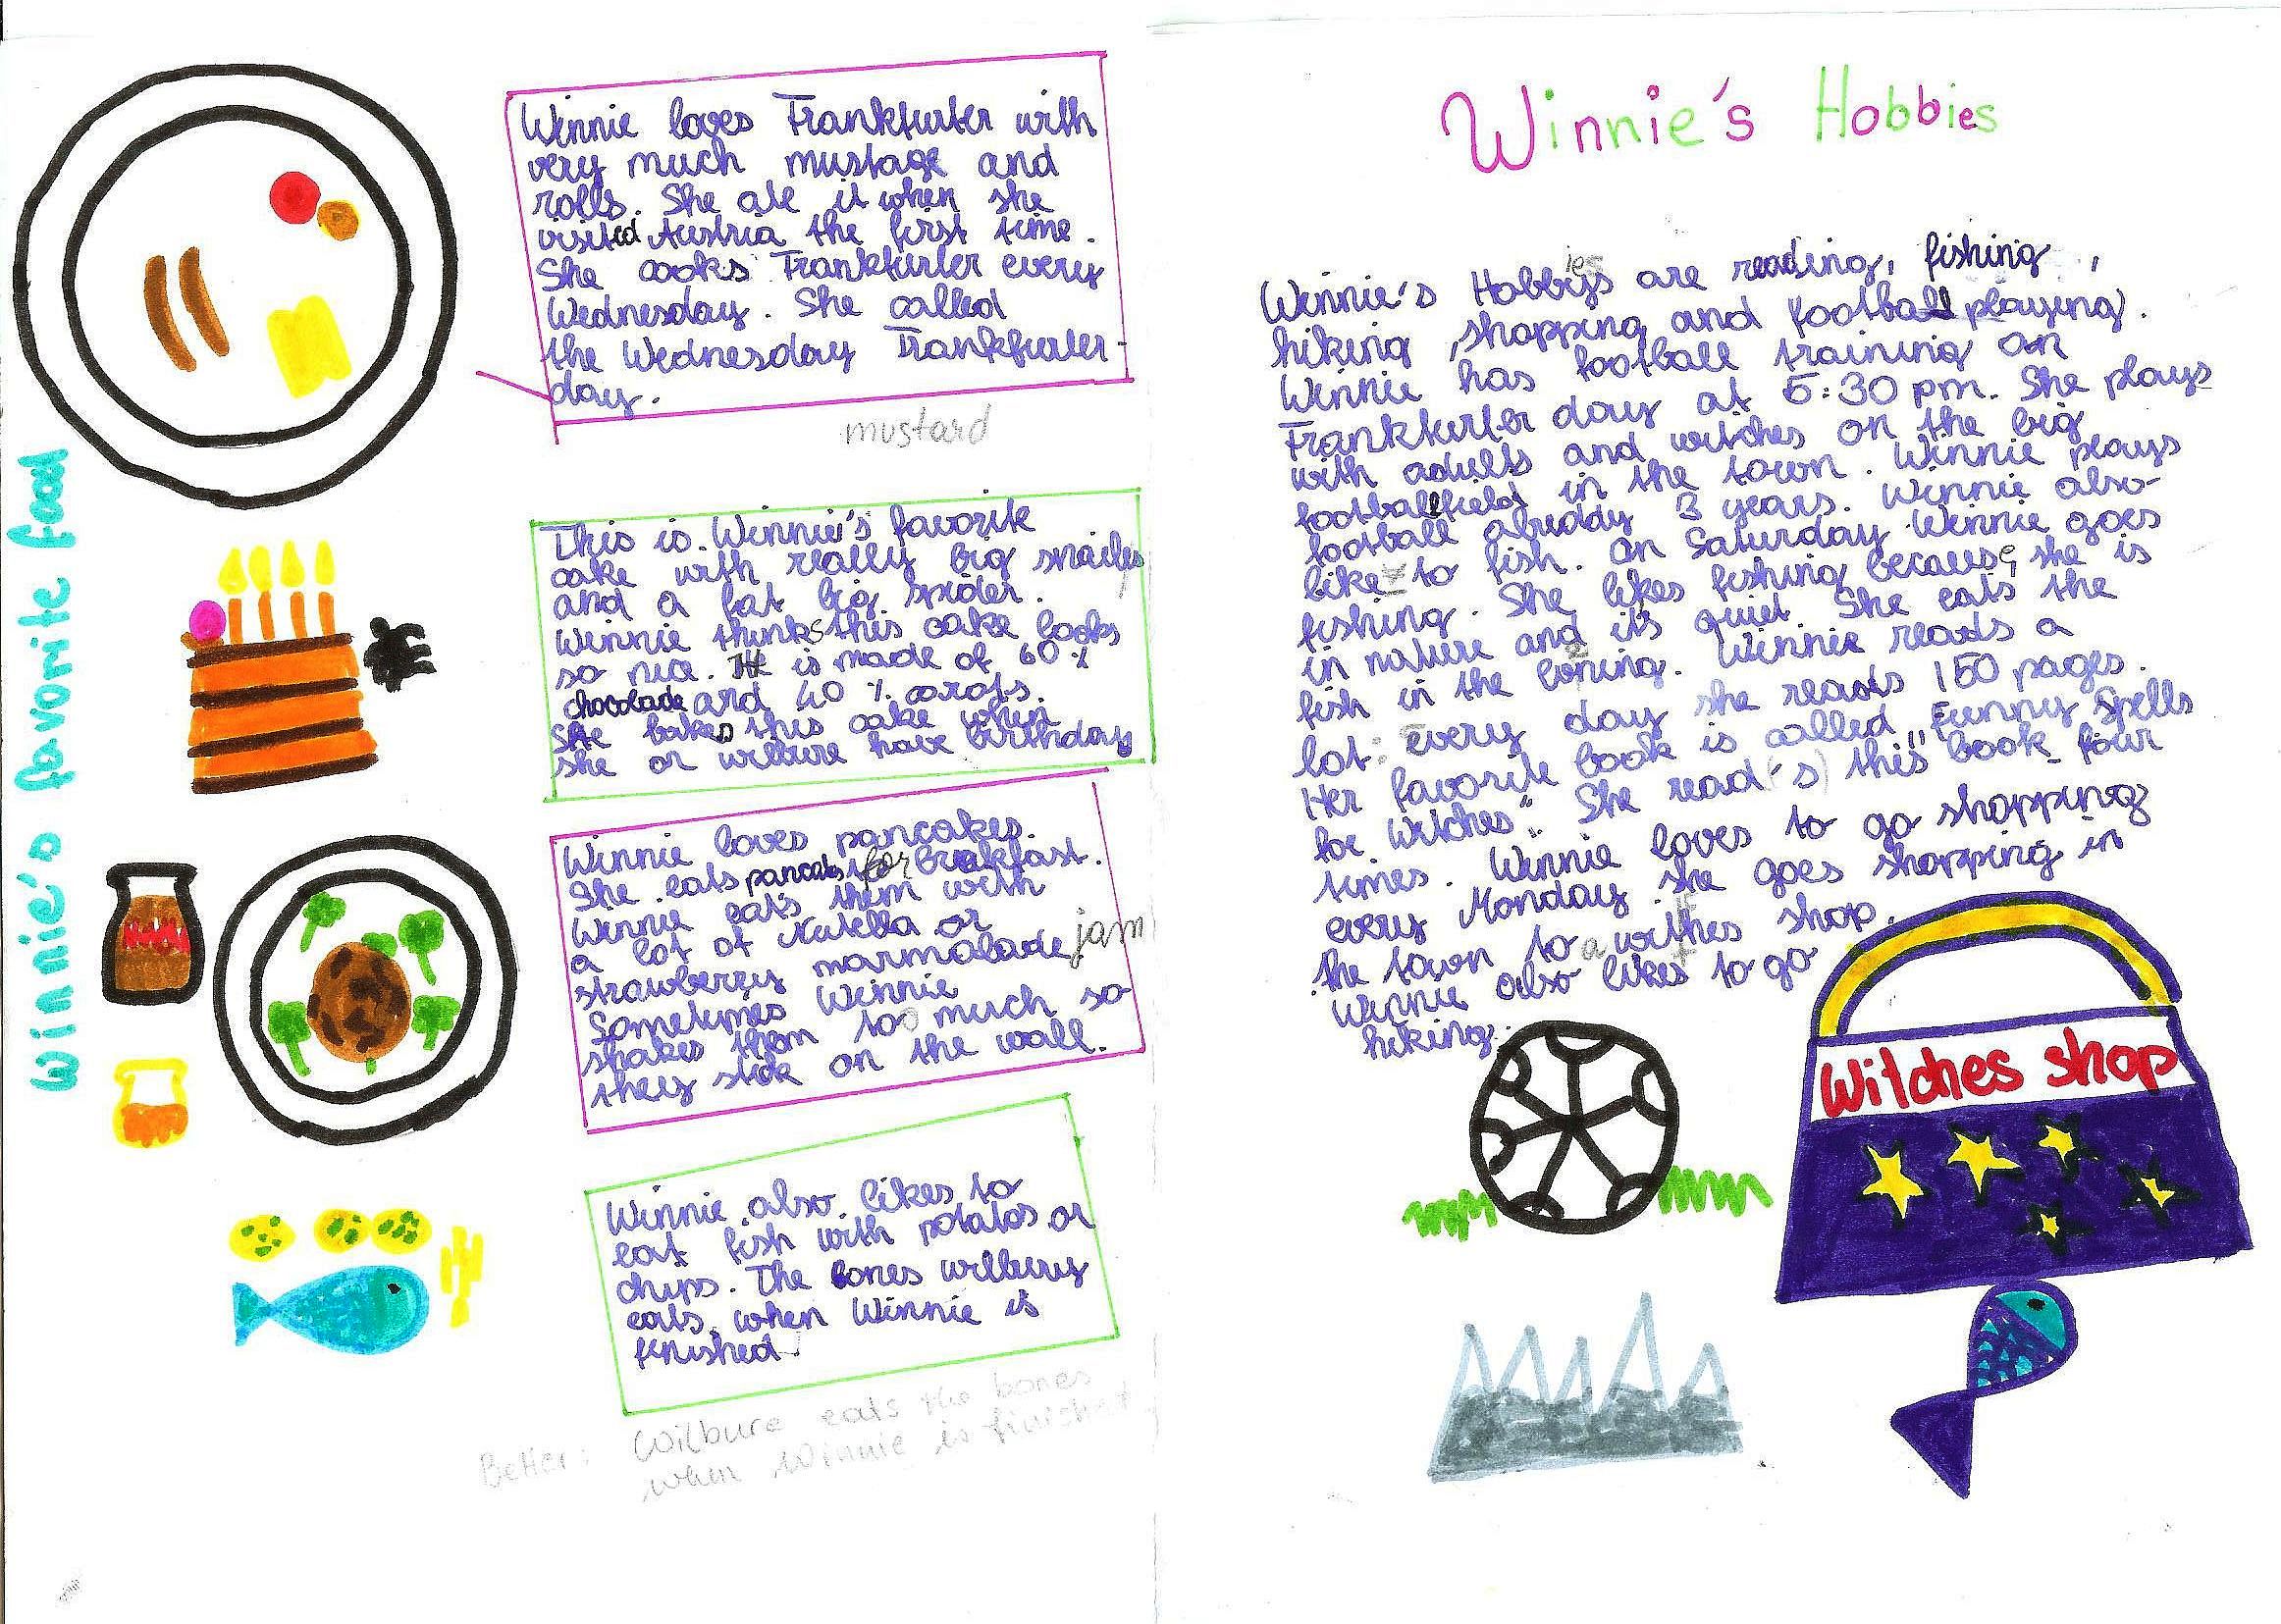 Winnie's favorite food
Winnie loves Frankfurter with
very much mustage and
rolls. She ate it when she
visited Austria the first time.
She cooks Frankfurter every
Wednesday. She called
the Wednesday Frankfurter-
day.
mustard
This is Winnie's favorite
cake with really big snailes
and a fat big spider.
Winnie thinks this cake looks
so nice. It is made of 60%
chocolade and 40% carots.
She bakes this cake when
she or wilbure have birthday
Winnie loves pancakes.
She eats pancakes for breakfast.
Winnie eats them with
a lot of Nutella or
strawberry marmalade jam
Sometimes Winnie
shakes them too much so
they stick on the wall.
Winnie also likes to
eat fish with potatos or
chips. The bones wilbury
eats when Winnie is
finished.
Better: Wilbure eats the bones
when Winnie is finished
Winnie's Hobbies
Winnie's Hobbys are reading, fishing,
ies
hiking, shopping and football playing.
Winnie has football training on
Frankfurter day at 5:30 pm. She plays
with adults and witches on the big
footballfield in the town. Winnie plays
football abuddy 3 years. Winnie also
like to fish. On Saturday Winnie goes
fishing. She likes fishing because she is
in nature and it's quiet. She eats the
fish in the evning. Winnie reads a
lot: every day she reads 150 pages.
Her favorite book is called „Funny Spells
for Witches". She read(s) this book four
times. Winnie loves to go shopping
every Monday she goes shopping in
the town to a withes shop.
Winnie also likes to go
hiking.
Witches shop